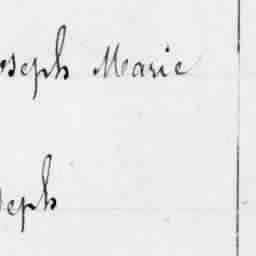 oseph Marie
seph